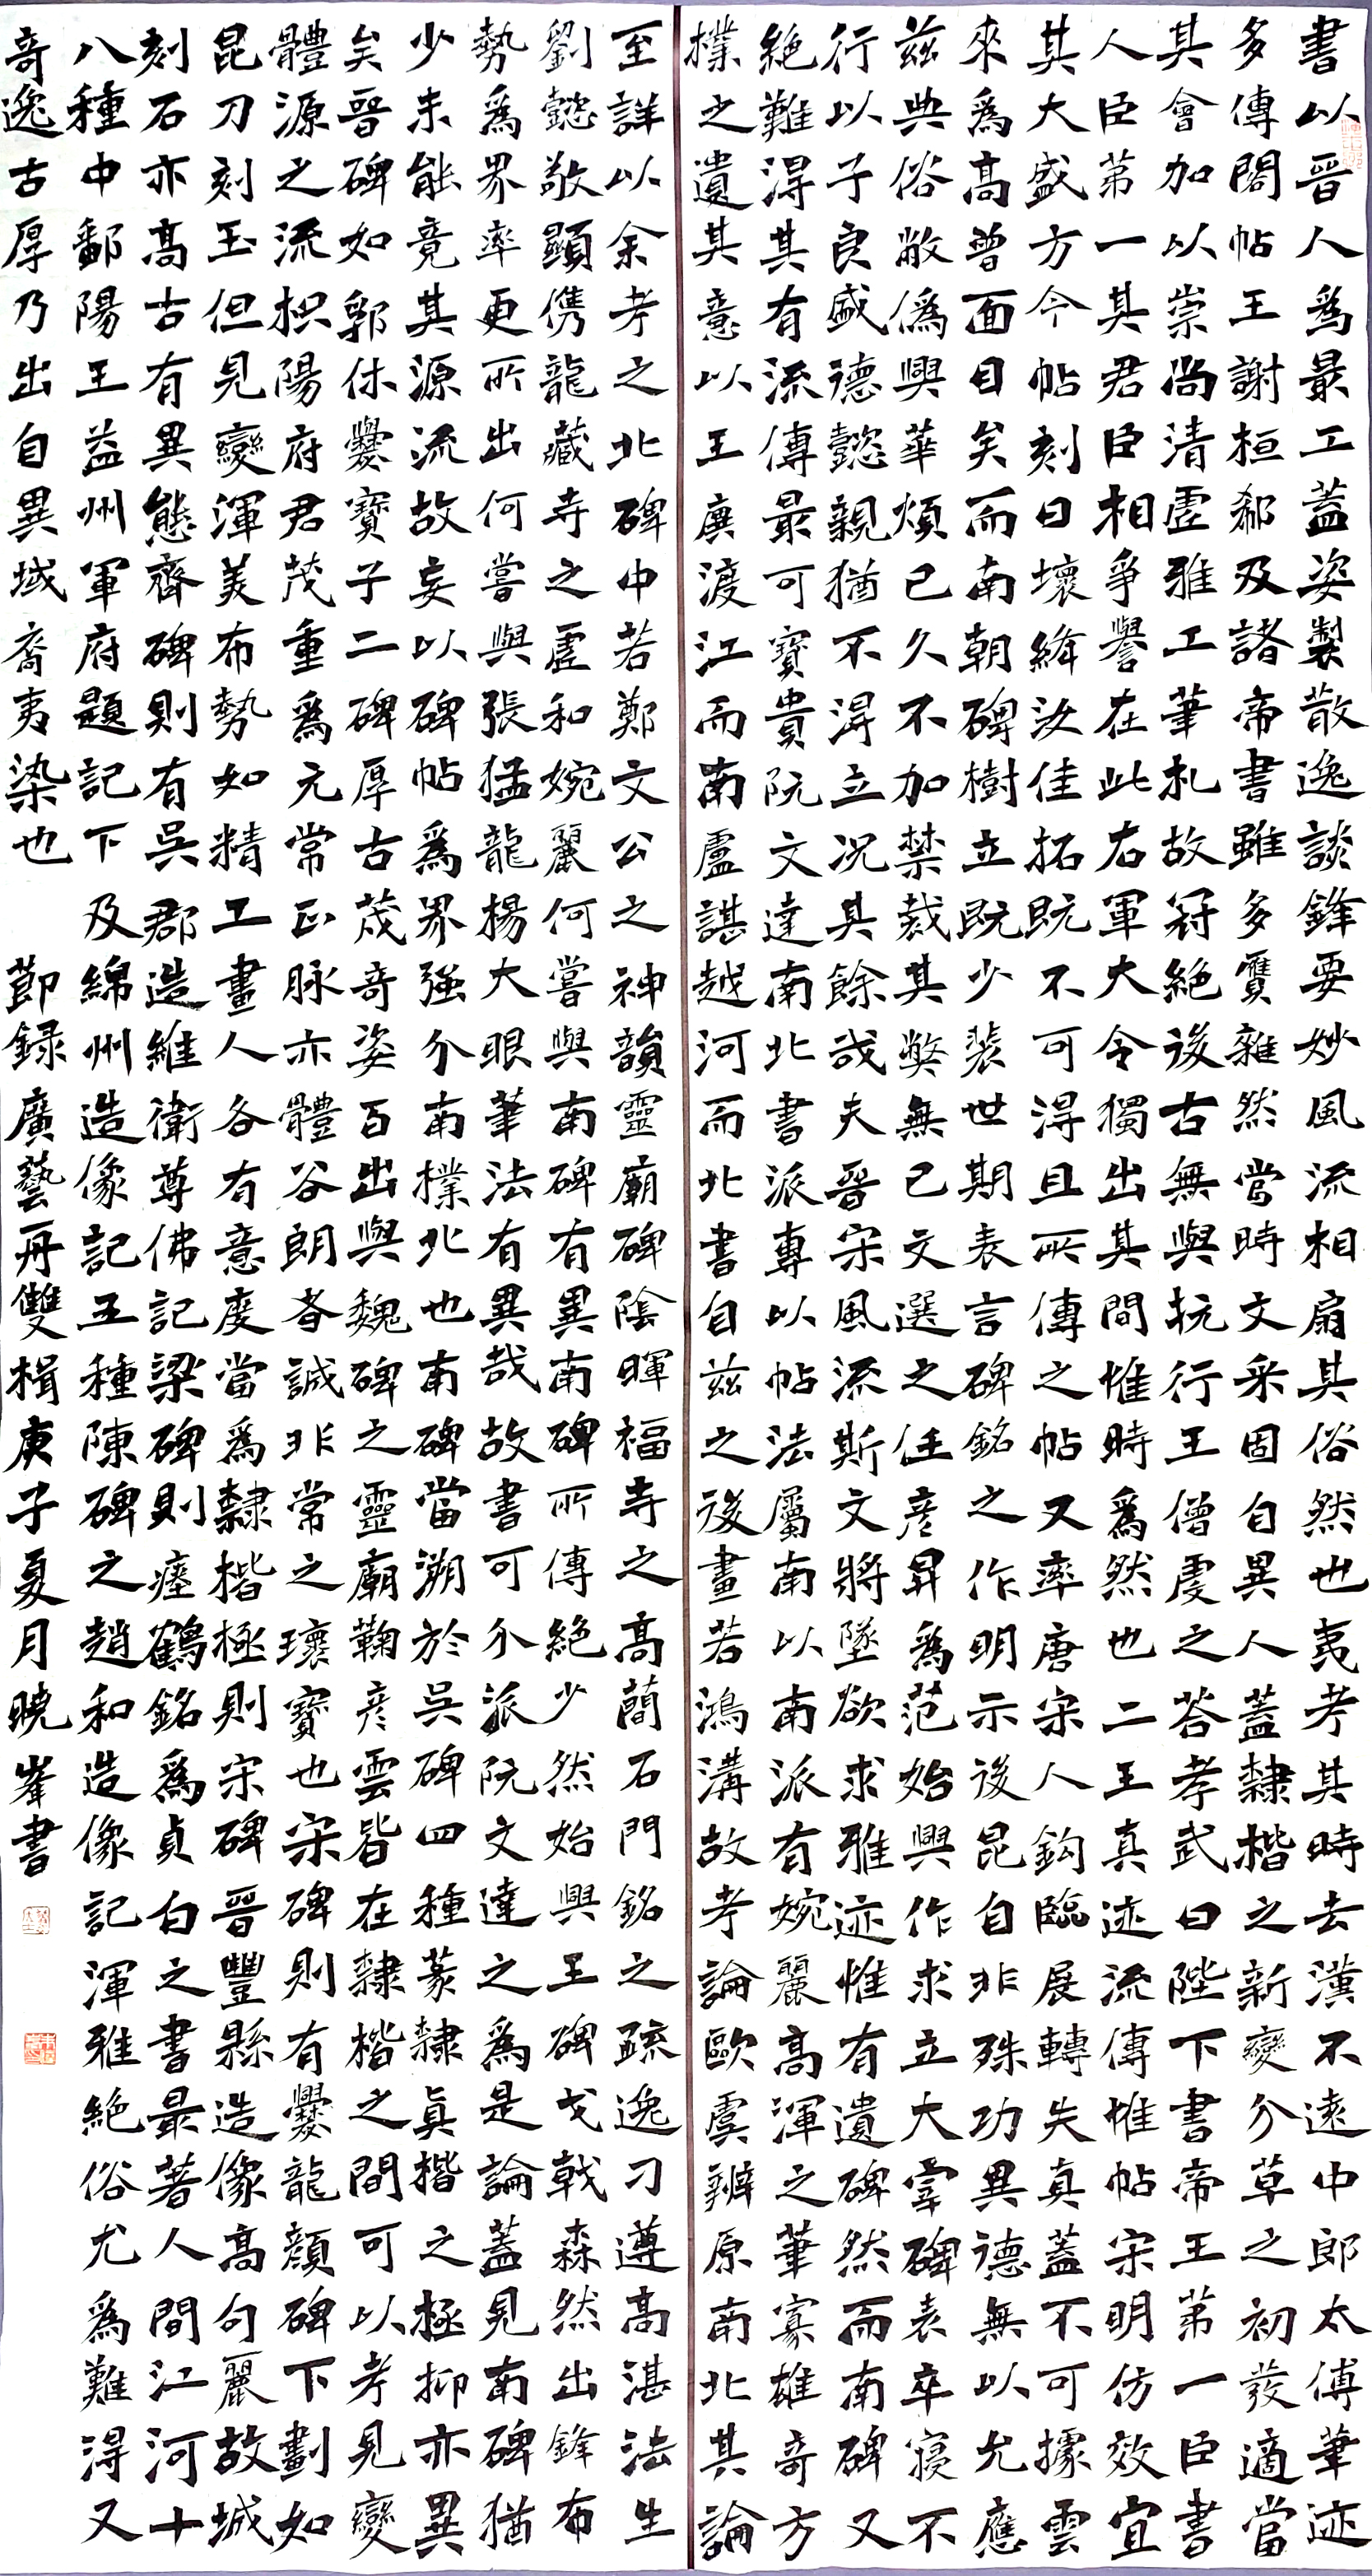 書以晉人爲最工蓋姿製散逸談鋒要妙風流相扇其俗然也夷考其時去漢不遠中郎太傅筆迹
多傳閣帖王謝桓郗及諸帝書雖多贋雜然當時文采固自異人蓋隸楷之新變分草之初發適當
其會加以崇尚清虛雅工筆札故冠絶後古無與抗行王僧虔之答孝武曰陛下書帝王第一臣書
人臣第一其君臣相爭譽在此右軍大令獨出其間惟時爲然也二王真迹流傳惟帖宋明仿效宜
其大盛方今帖刻日壞絳汝佳拓既不可得且所傳之帖又率唐宋人鈎臨展轉失真蓋不可據雲
來爲高曾面目矣而南朝碑樹立既少裴世期表言碑銘之作明示後昆自非殊功異德無以允應
茲典俗敝僞興華煩已久不加禁裁其弊無已文選之任彥昇爲范始興作求立大宰碑表卒寢不
行以子良盛德懿親猶不得立況其餘哉夫晉宋風流斯文將墜欲求雅迹惟有遺碑然而南碑又
絶難得其有流傳最可寶貴阮文達南北書派專以帖法屬南以南派有婉麗高渾之筆寡雄奇方
樸之遺其意以王廙渡江而南盧諶越河而北書自茲之後畫若鴻溝故考論歐虞辨原南北其論
至詳以余考之北碑中若鄭文公之神韻靈廟碑陰暉福寺之高簡石門銘之疏逸刁遵高湛法生
劉懿敬顯儁龍藏寺之虛和婉麗何嘗與南碑有異南碑所傳絶少然始興王碑戈戟森然出鋒布
勢爲界率更所出何嘗與張猛龍楊大眼筆法有異哉故書可分派阮文達之爲是論蓋見南碑猶
少未能竟其源流故妄以碑帖爲界強分南樸北也南碑當溯於吳碑四種篆隸真楷之極抑亦異
矣晉碑如郭休爨寶子二碑厚古茂奇姿百出與魏碑之靈廟鞠彥雲皆在隸楷之間可以考見變
體源之流枳陽府君茂重爲元常正脉亦體谷朗者誠非常之瓌寶也宋碑則有爨龍顏碑下劃如
昆刀刻玉但見變渾美布勢如精工畫人各有意度當爲隸楷極則宋碑晉豐縣造像高句麗故城
刻石亦高古有異態齊碑則有吳郡造維衛尊佛記梁碑則瘞鶴銘爲貞白之書最著人間江河十
八種中鄱陽王益州軍府題記下及綿州造像記五種陳碑之趙和造像記渾雅絶俗尤爲難得又
奇逸古厚乃出自異域裔夷染也 節録廣藝舟雙楫庚子夏月曉峯書